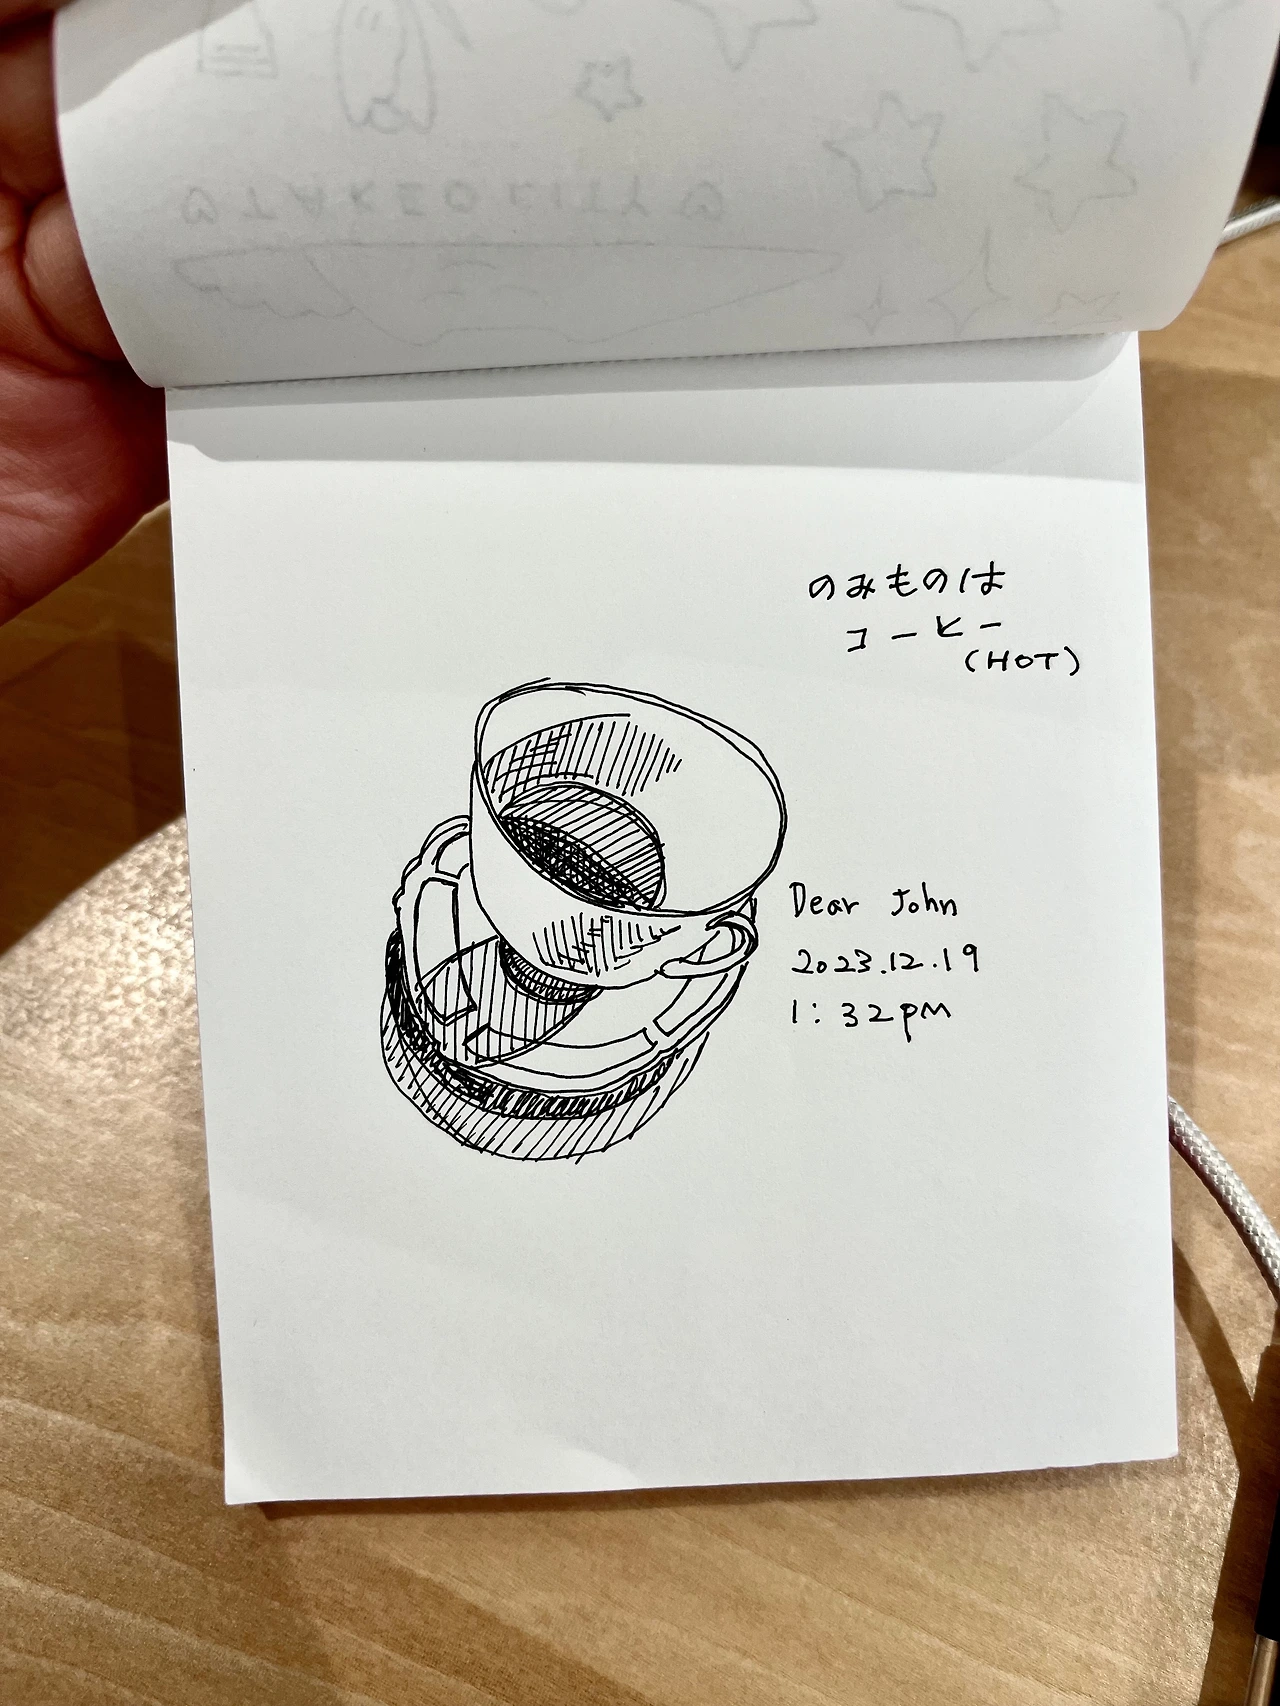 ♡TAKEO CITY♡
のみものは
コーヒー
(HOT)
Dear John
2023.12.19
1:32pm